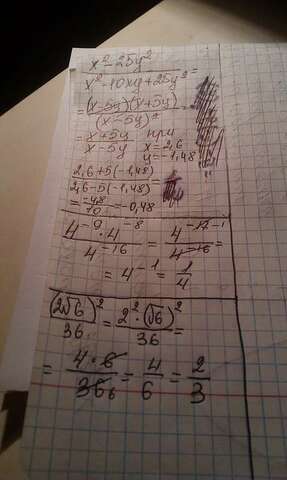 x² - 25y²
x² - 10xy + 25y² =
= (x-5y)(x+5y)
(x-5y)² =
= x+5y при x=2,6
x-5y y=-1,48
2,6+5(-1,48)
2,6-5(-1,48) =
= -4,8
10 = -0,48
4⁻⁹ · 4⁻⁸ = 4⁻¹⁷ ⁻¹
4⁻¹⁶ = 4⁻¹⁶ =
= 4⁻¹ = 1/4
(2√6)² = 2² · (√6)²
36 = 36 =
= 4 · 6 = 4 = 2
36 6 = 6 = 3